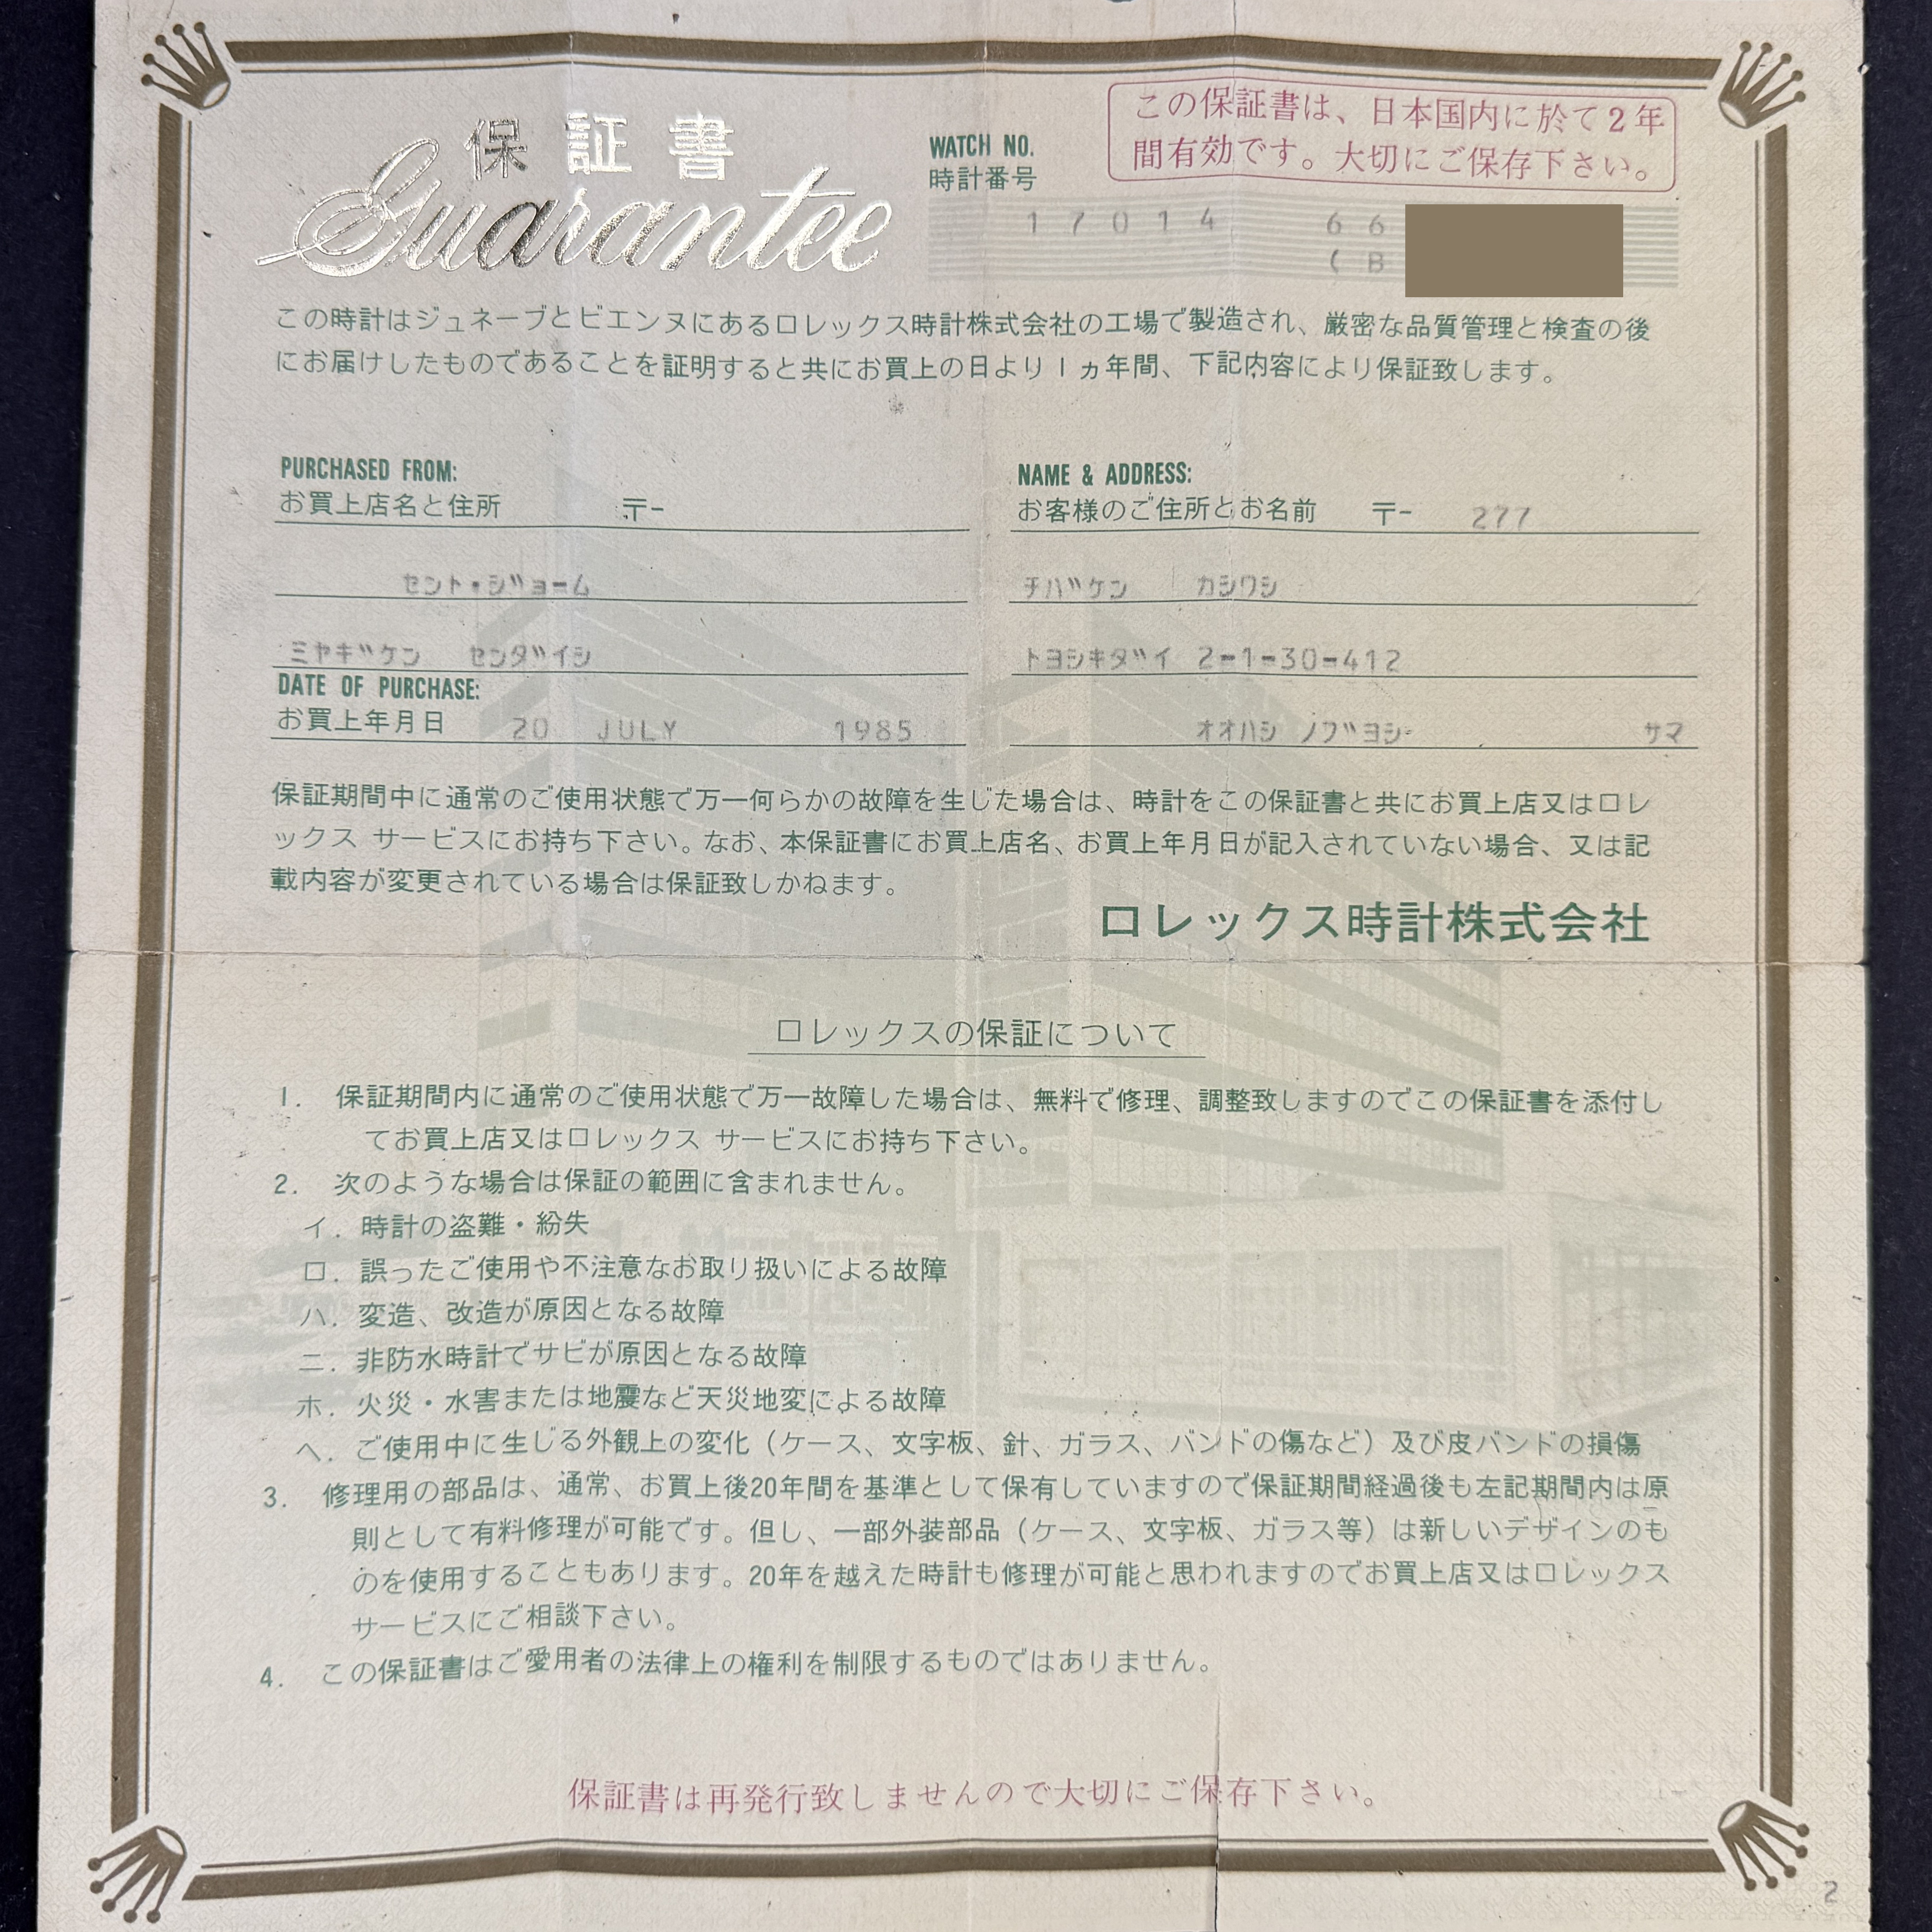 保証書
Guarantee
WATCH NO.
時計番号
この保証書は、日本国内に於て2年
間有効です。大切にご保存下さい。
17014 66
(B
この時計はジュネーブとビエンヌにあるロレックス時計株式会社の工場で製造され、厳密な品質管理と検査の後
にお届けしたものであることを証明すると共にお買上の日より1ヵ年間、下記内容により保証致します。
PURCHASED FROM:
お買上店名と住所 〒-
セント・ジョーム
ミヤギケン センダイシ
DATE OF PURCHASE:
お買上年月日 20 JULY 1985
NAME & ADDRESS:
お客様のご住所とお名前 〒- 277
チバケン カシワシ
トヨシキダイ 2-1-30-412
オオハシ ノブヨシ サマ
保証期間中に通常のご使用状態で万一何らかの故障を生じた場合は、時計をこの保証書と共にお買上店又はロレ
ックス サービスにお持ち下さい。なお、本保証書にお買上店名、お買上年月日が記入されていない場合、又は記
載内容が変更されている場合は保証致しかねます。
ロレックス時計株式会社
ロレックスの保証について
1. 保証期間内に通常のご使用状態で万一故障した場合は、無料で修理、調整致しますのでこの保証書を添付し
てお買上店又はロレックス サービスにお持ち下さい。
2. 次のような場合は保証の範囲に含まれません。
イ. 時計の盗難・紛失
ロ. 誤ったご使用や不注意なお取り扱いによる故障
ハ. 変造、改造が原因となる故障
ニ. 非防水時計でサビが原因となる故障
ホ. 火災・水害または地震など天災地変による故障
ヘ. ご使用中に生じる外観上の変化(ケース、文字板、針、ガラス、バンドの傷など)及び皮バンドの損傷
3. 修理用の部品は、通常、お買上後20年間を基準として保有していますので保証期間経過後も左記期間内は原
則として有料修理が可能です。但し、一部外装部品(ケース、文字板、ガラス等)は新しいデザインのも
のを使用することもあります。20年を越えた時計も修理が可能と思われますのでお買上店又はロレックス
サービスにご相談下さい。
4. この保証書はご愛用者の法律上の権利を制限するものではありません。
保証書は再発行致しませんので大切にご保存下さい。
2